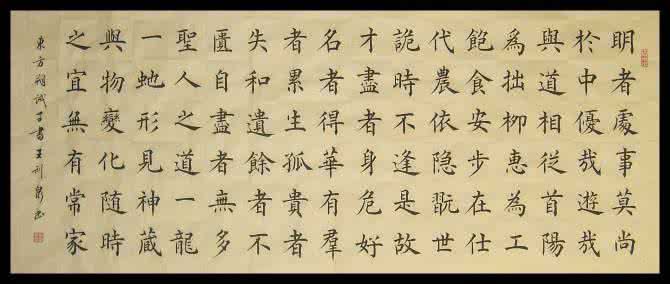 明者處事莫尚
於中優哉遊哉
與道相從首陽
爲拙栁惠為工
飽食安步在仕
代農依隐翫世
詭時不逢是故
才盡者身危好
名者得華有羣
者累生孤貴者
失和遺餘者不
匱自盡者無多
聖人之道一龍
一虵形見神藏
與物變化随時
之宜無有常家
東方朔誡子書王利